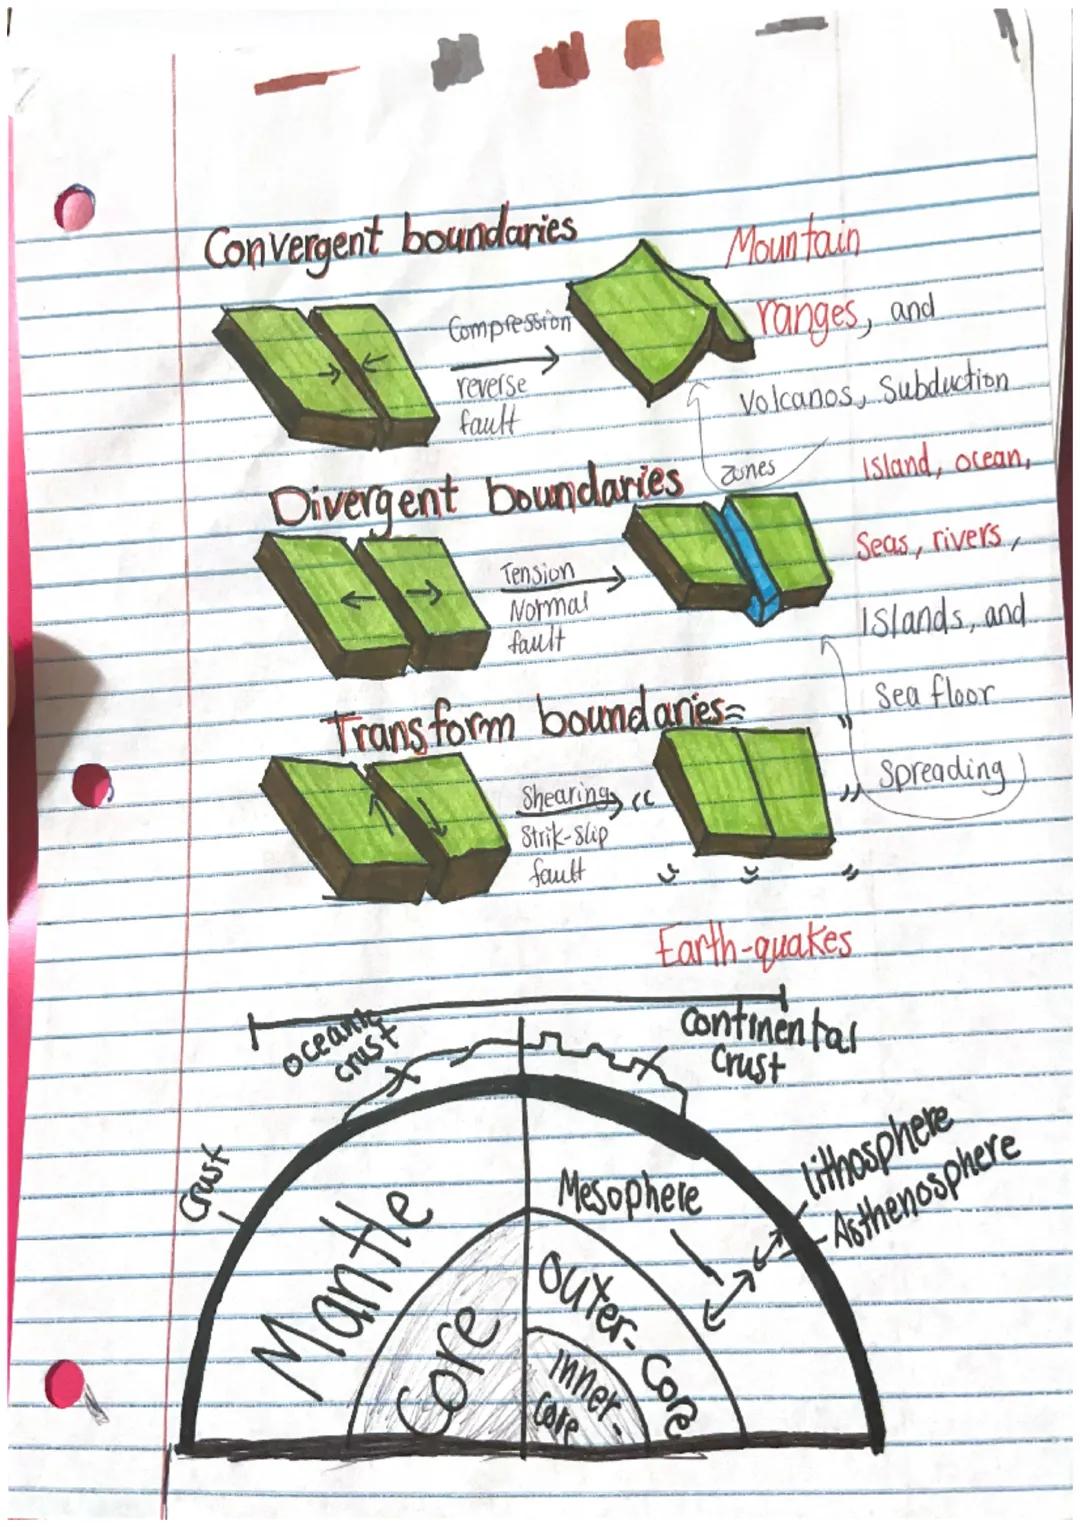 Convergent boundaries
Compression
reverse
fault
Mountain
ranges, and
Volcanos, Subduction
zones
Divergent boundaries
Tension
Normal
fault
Island, ocean,
Seas, rivers,
Islands, and
Sea floor
Spreading
Transform boundaries=
Shearing
Strik-slip
fault
Earth-quakes
oceanic
crust
Continental
Crust
Crust
lithosphere
Asthenosphere
Mesophere
Mantle
Core
Outer-Core
Inner-
Core